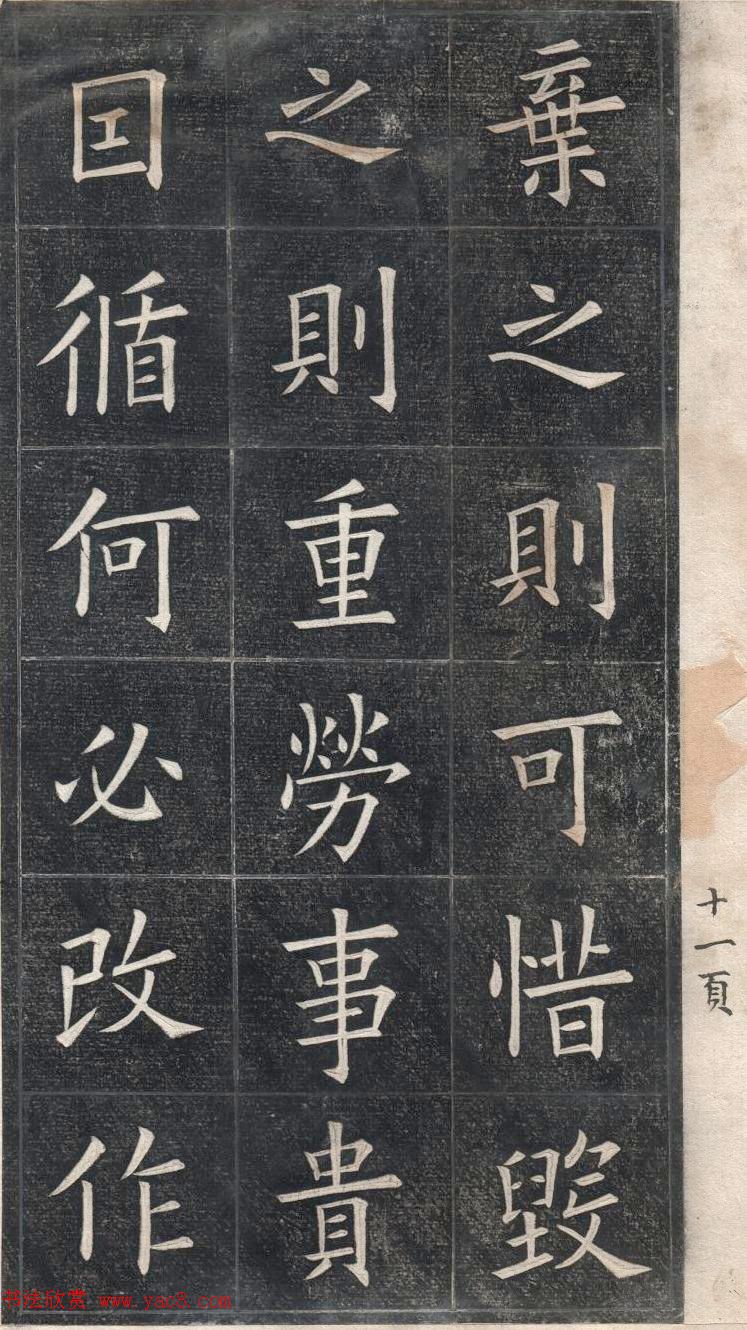 棄之則可惜毀
之則重勞事貴
囙循何必改作
十一頁
书法欣赏 www.yac8.com